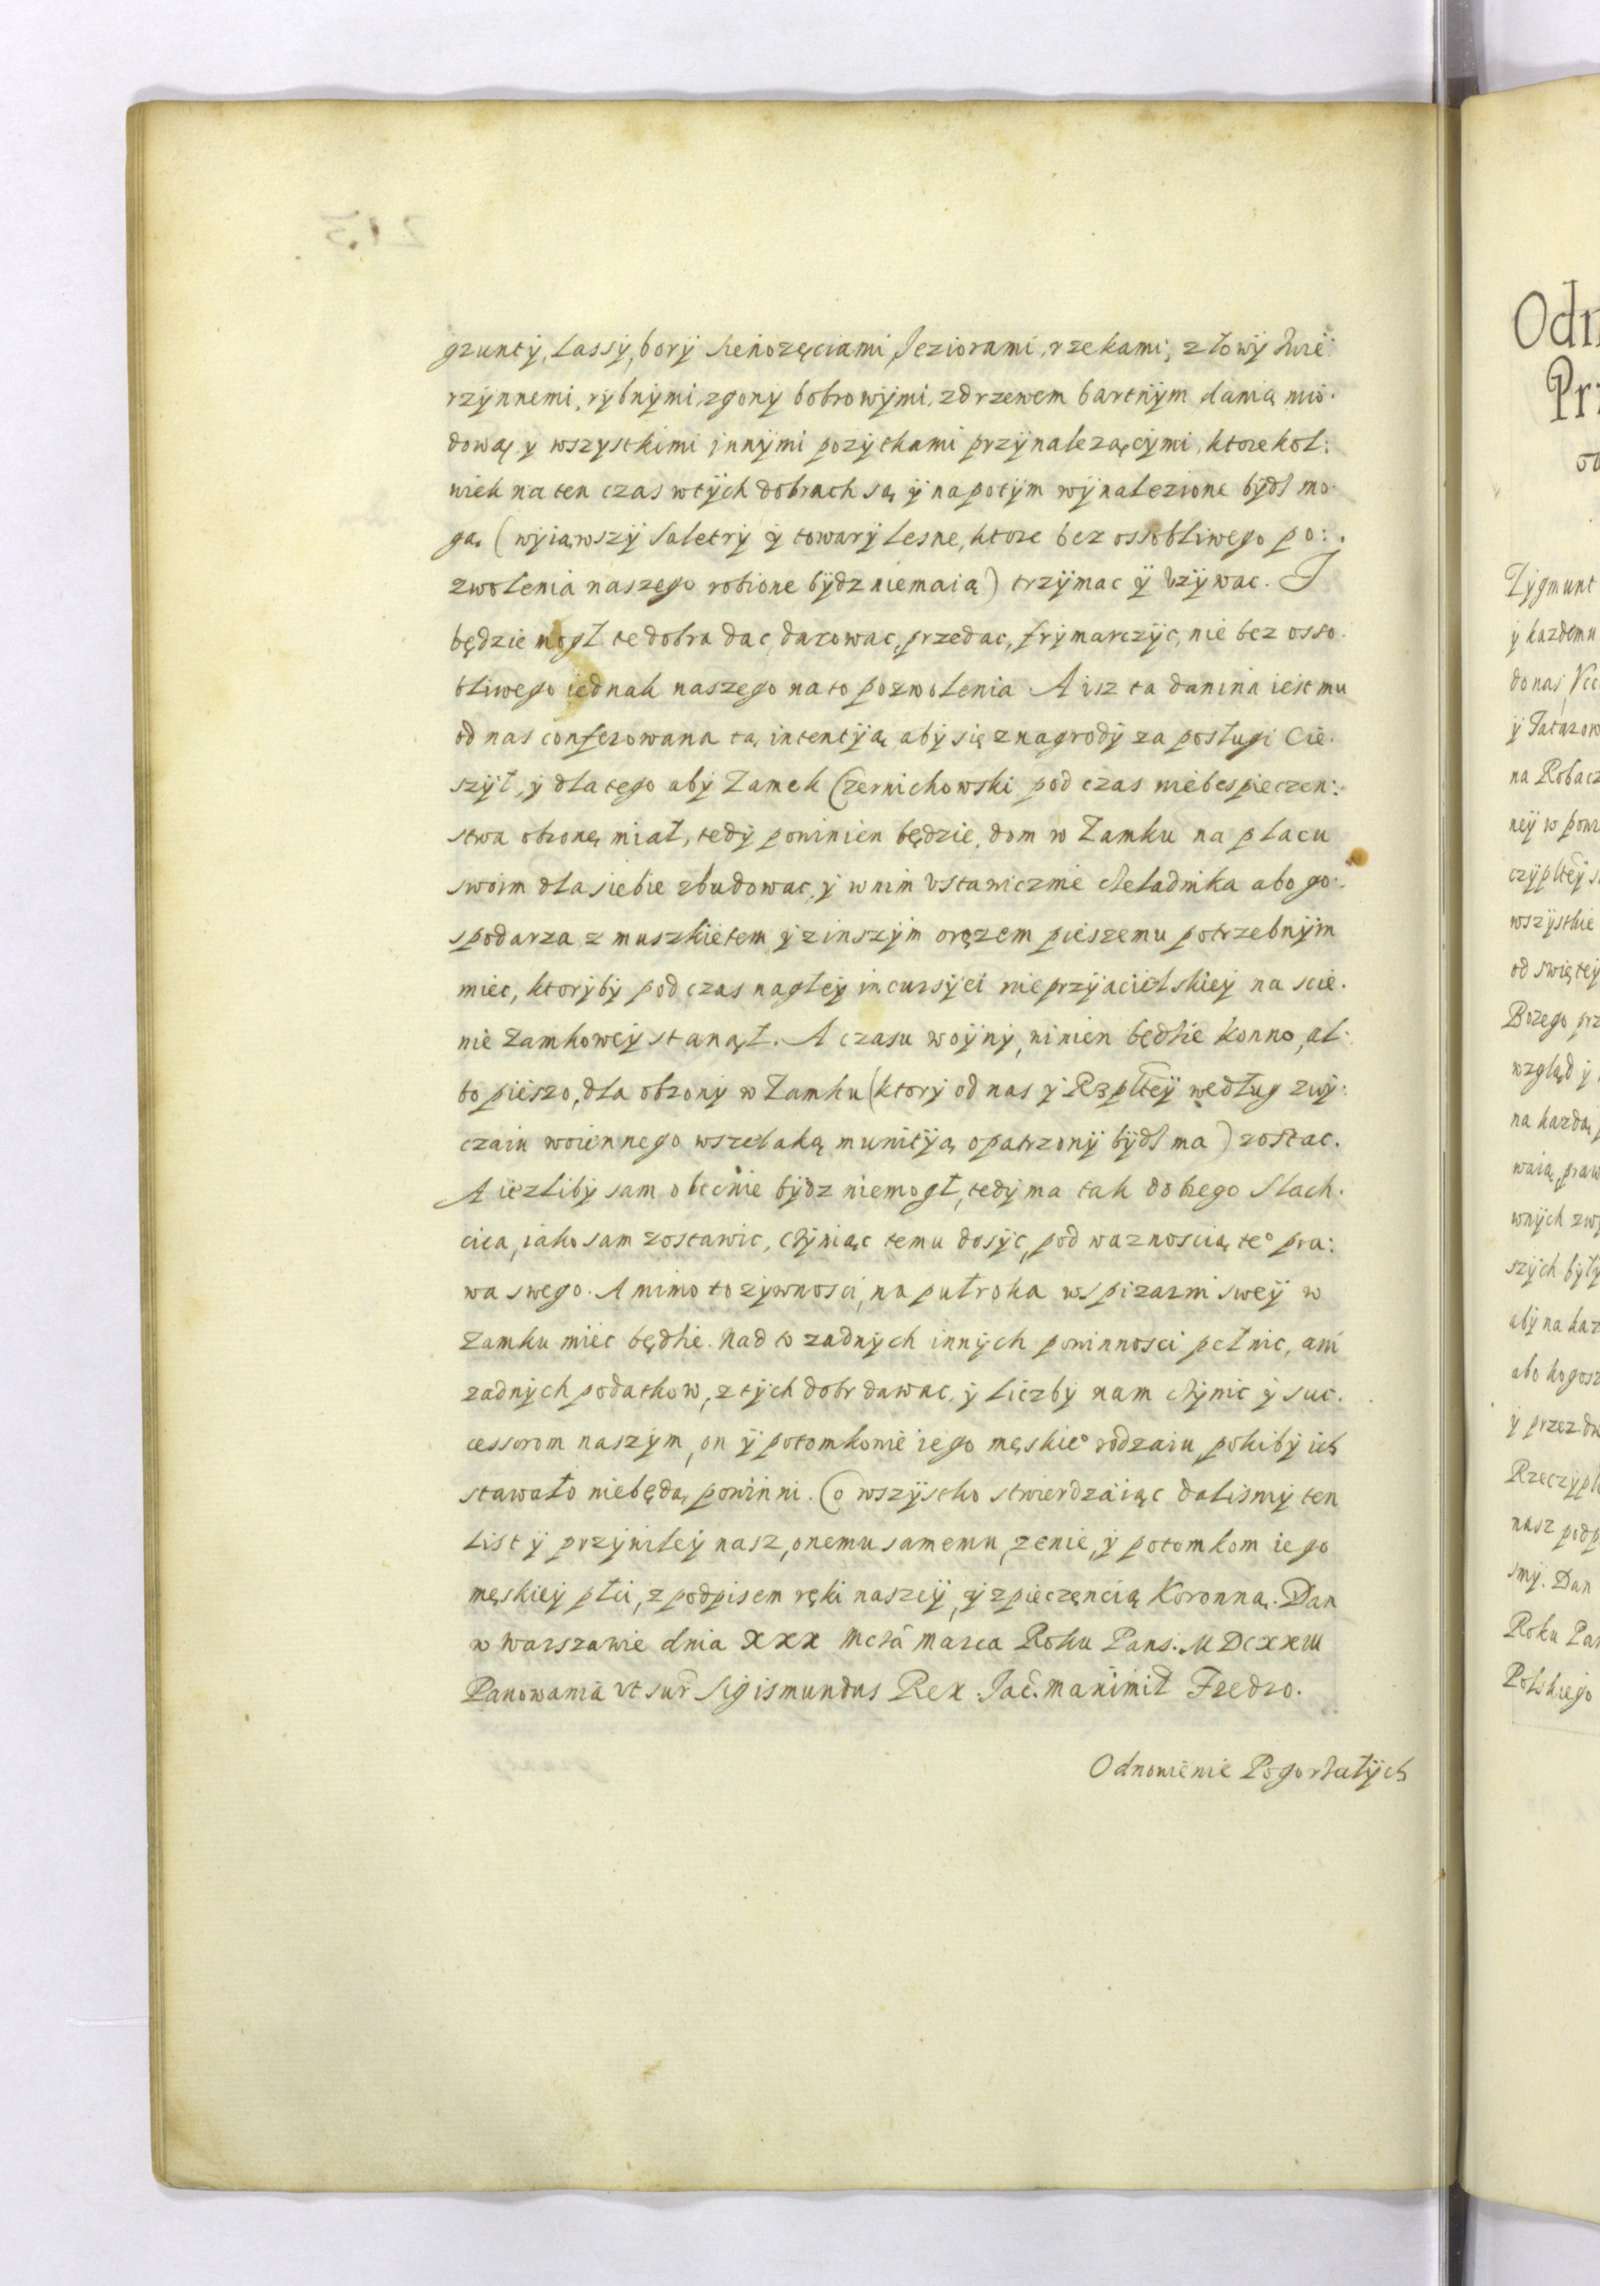 gruntÿ, lassÿ, borÿ sienozęciami, Jeziorami, rzekami, złowÿ zwie
rzÿnnemi, rÿbnÿmi, zgonÿ bobrowÿmi, zdrzewem bartnÿm danią mio.
dową, y wszystkimi innÿmi pozÿtkami przÿnalezącÿmi, ktorekol:
wiek na ten czas wtÿch dobrach są ÿ napotÿm wÿnalezione bÿdz mo.
gą (wÿiąwszÿ saletrÿ ÿ towarÿ lesne, ktore bez ossobliwego po:
zwolenia naszego robione bÿdz niemaią) trzÿmac ÿ vzÿwac. I
będzie mogł te dobra dac, darowac, przedac, frÿmarczÿc, nie bez osso.
bliwego iednak naszego na to pozwolenia A isz ta danina iest mu
od nas conferowana tą intentÿą abÿ się znagrodÿ za posługi Cie.
szÿł, ÿ dlatego abÿ Zamek Czernichowski pod czas niebespieczen:
stwa obronę miał, tedÿ powinien będzie, dom w Zamku na placu
swoim dla siebie zbudowac, ÿ wnim vstawicznie czeladnika abo go:
spodarza z muszkietem ÿ zinszÿm oręzem pieszemu potrzebnÿm
miec, ktorÿbÿ pod czas nagłeÿ incursÿei nieprzÿacielskieÿ na scie.
nie Zamkoweÿ stanął. A czasu woÿnÿ, winien będzie konno, al:
bo pieszo, dla obronÿ w Zamku (ktorÿ od nas ÿ Rzplteÿ według zwÿ:
czaiu woiennego wszelaką munitÿą opatrzonÿ bÿdz ma) zostac.
A iezlibÿ sam obecnie bÿdz niemogł, tedÿ ma tak dobrego Slach.
cica, iako sam zostawic, czÿniąc temu dosÿc, pod waznoscią te° pra:
wa swego. A mimo to zÿwnosci, na pułroka wspizarni sweÿ w
Zamku miec będzie. Nad to zadnÿch innÿch powinnosci pełnic, ani
zadnÿch podatkow, z tÿch dobr dawac, ÿ liczbÿ nam czÿnic ÿ suc.
cessorom naszÿm, on ÿ potomkowie iego męskie° rodzaiu, pokibÿ ich
stawało niebędą powinni. Co wszÿstko stwierdzaiąc dalismÿ ten
list ÿ przÿwileÿ nasz, onemu samemu, zenie, ÿ potomkom iego
męskieÿ płci, z podpisem ręki naszeÿ, ÿ zpieczęncią Koronną. Dan
w Warszawie dnia XXX Mcã Marca Roku Pans. MDCXXIII
Panowania vt sup Sigismundus Rex. Jac. Maximil Fredro.
Odnowienie Pogorzałÿch
Odn
Prz
Zÿgmunt
ÿ kazdemu
do nas
ÿ Tatarow
na Robacz
neÿ w pow
wszÿstkie
od swięteÿ
Bozego prz
wzgląd ÿ
na kazdą
waią praw
wnÿch zw
szÿch bÿłÿ
abÿ na kaz
abo kogosz
ÿ przez dw
Rzeczÿpl
nasz podp
smÿ. Dan
Roku Pan
Polskiego